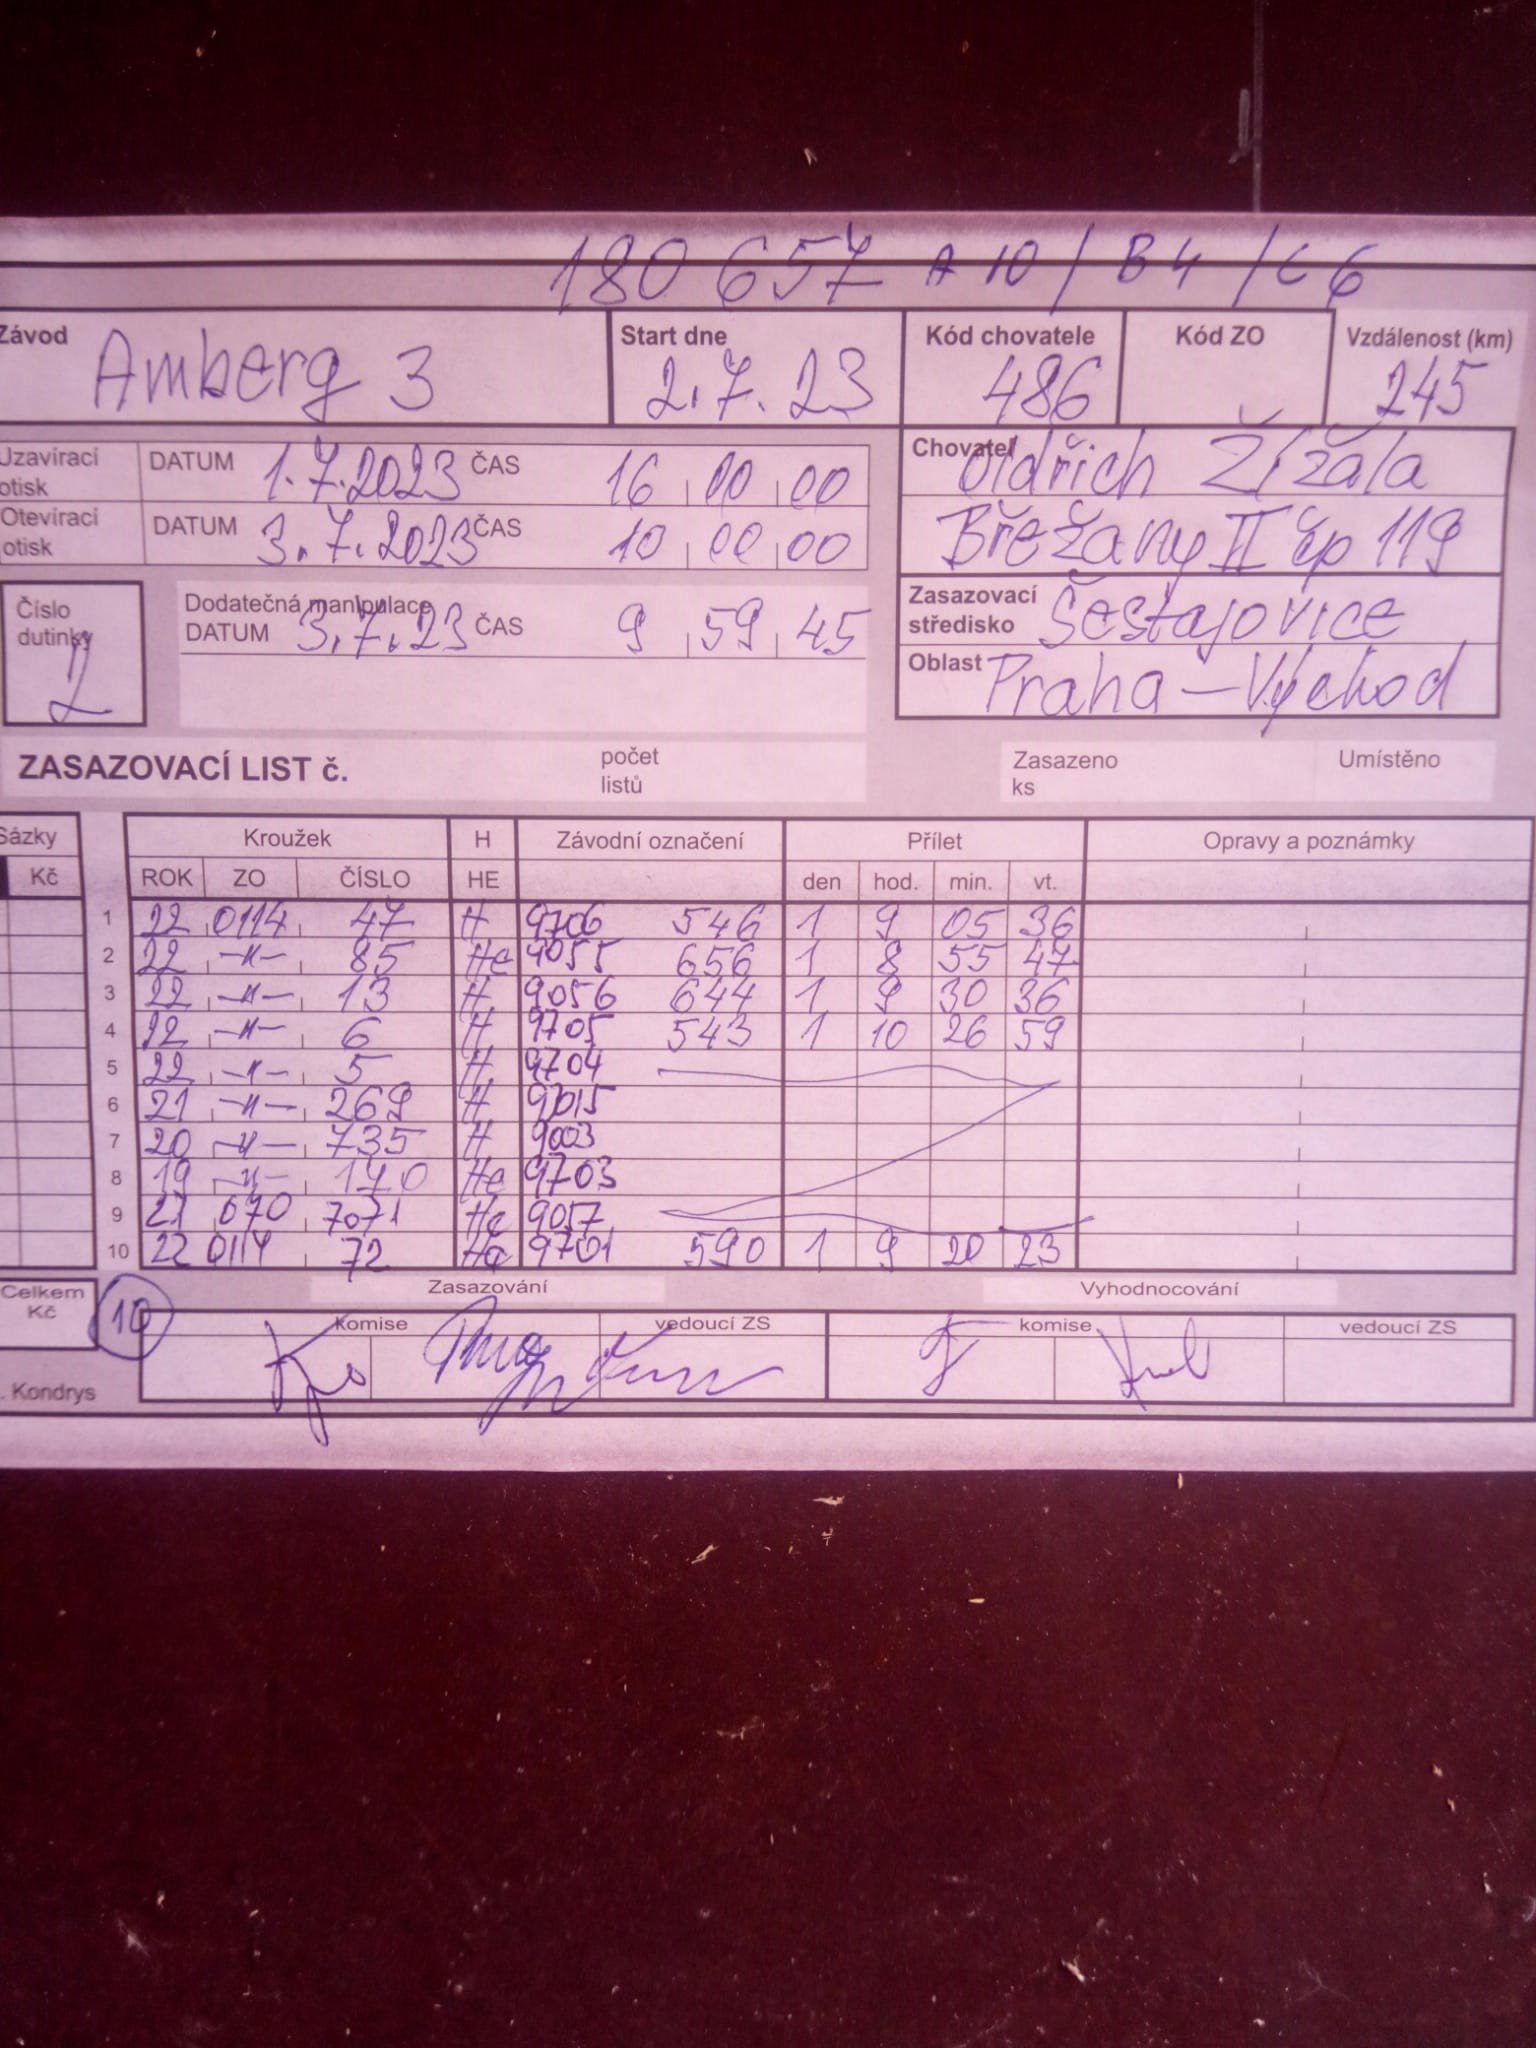 180 657 A 10 / B 4 / C 6
Závod Amberg 3 Start dne 2.7.23 Kód chovatele 486 Kód ZO Vzdálenost (km) 245
Uzavírací otisk DATUM 1.7.2023 ČAS 16 00 00
Otevírací otisk DATUM 3.7.2023 ČAS 10 00 00
Chovatel Oldřich Žížala
Břežany II čp 119
Číslo dutinky 2
Dodatečná manipulace
DATUM 3.7.23 ČAS 9 59 45
Zasazovací středisko Šestajovice
Oblast Praha - Východ
ZASAZOVACÍ LIST č. počet listů Zasazeno ks Umístěno
Sázky Kroužek H Závodní označení Přílet Opravy a poznámky
Kč ROK ZO ČÍSLO HE den hod. min. vt.
1 22 0114 47 H 9706 546 1 9 05 36
2 22 -"- 85 He 9055 656 1 8 55 47
3 22 -"- 13 H 9056 644 1 9 30 36
4 22 -"- 6 H 9705 543 1 10 26 59
5 22 -"- 5 H 9704
6 21 -"- 269 H 9015
7 20 -"- 735 H 9003
8 19 -"- 170 He 9703
9 21 070 7071 He 9057
10 22 0114 72 He 9701 590 1 9 20 23
Celkem Kč 10 Zasazování Vyhodnocování
komise vedoucí ZS komise vedoucí ZS
. Kondrys